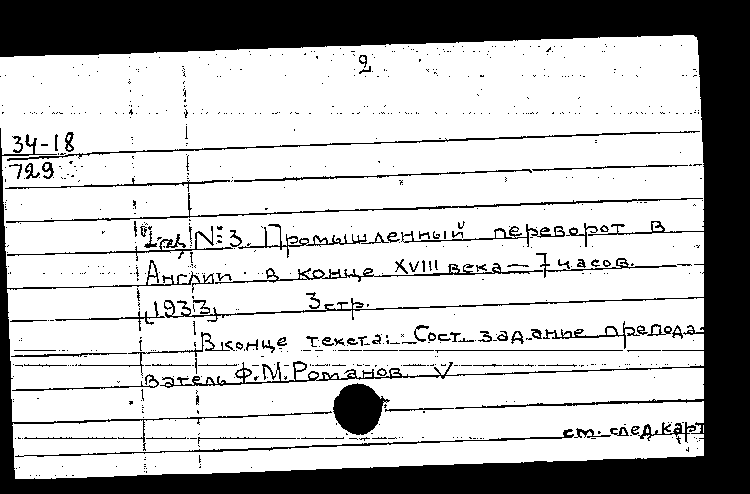 2
34-18
729
№3. Промышленный переворот в
Англии в конце XVIII века — 7 часов.
[1933]. 3 стр.
В конце текста: Сост. задание препода-
ватель Ф.М. Романов. V
см. след. карт